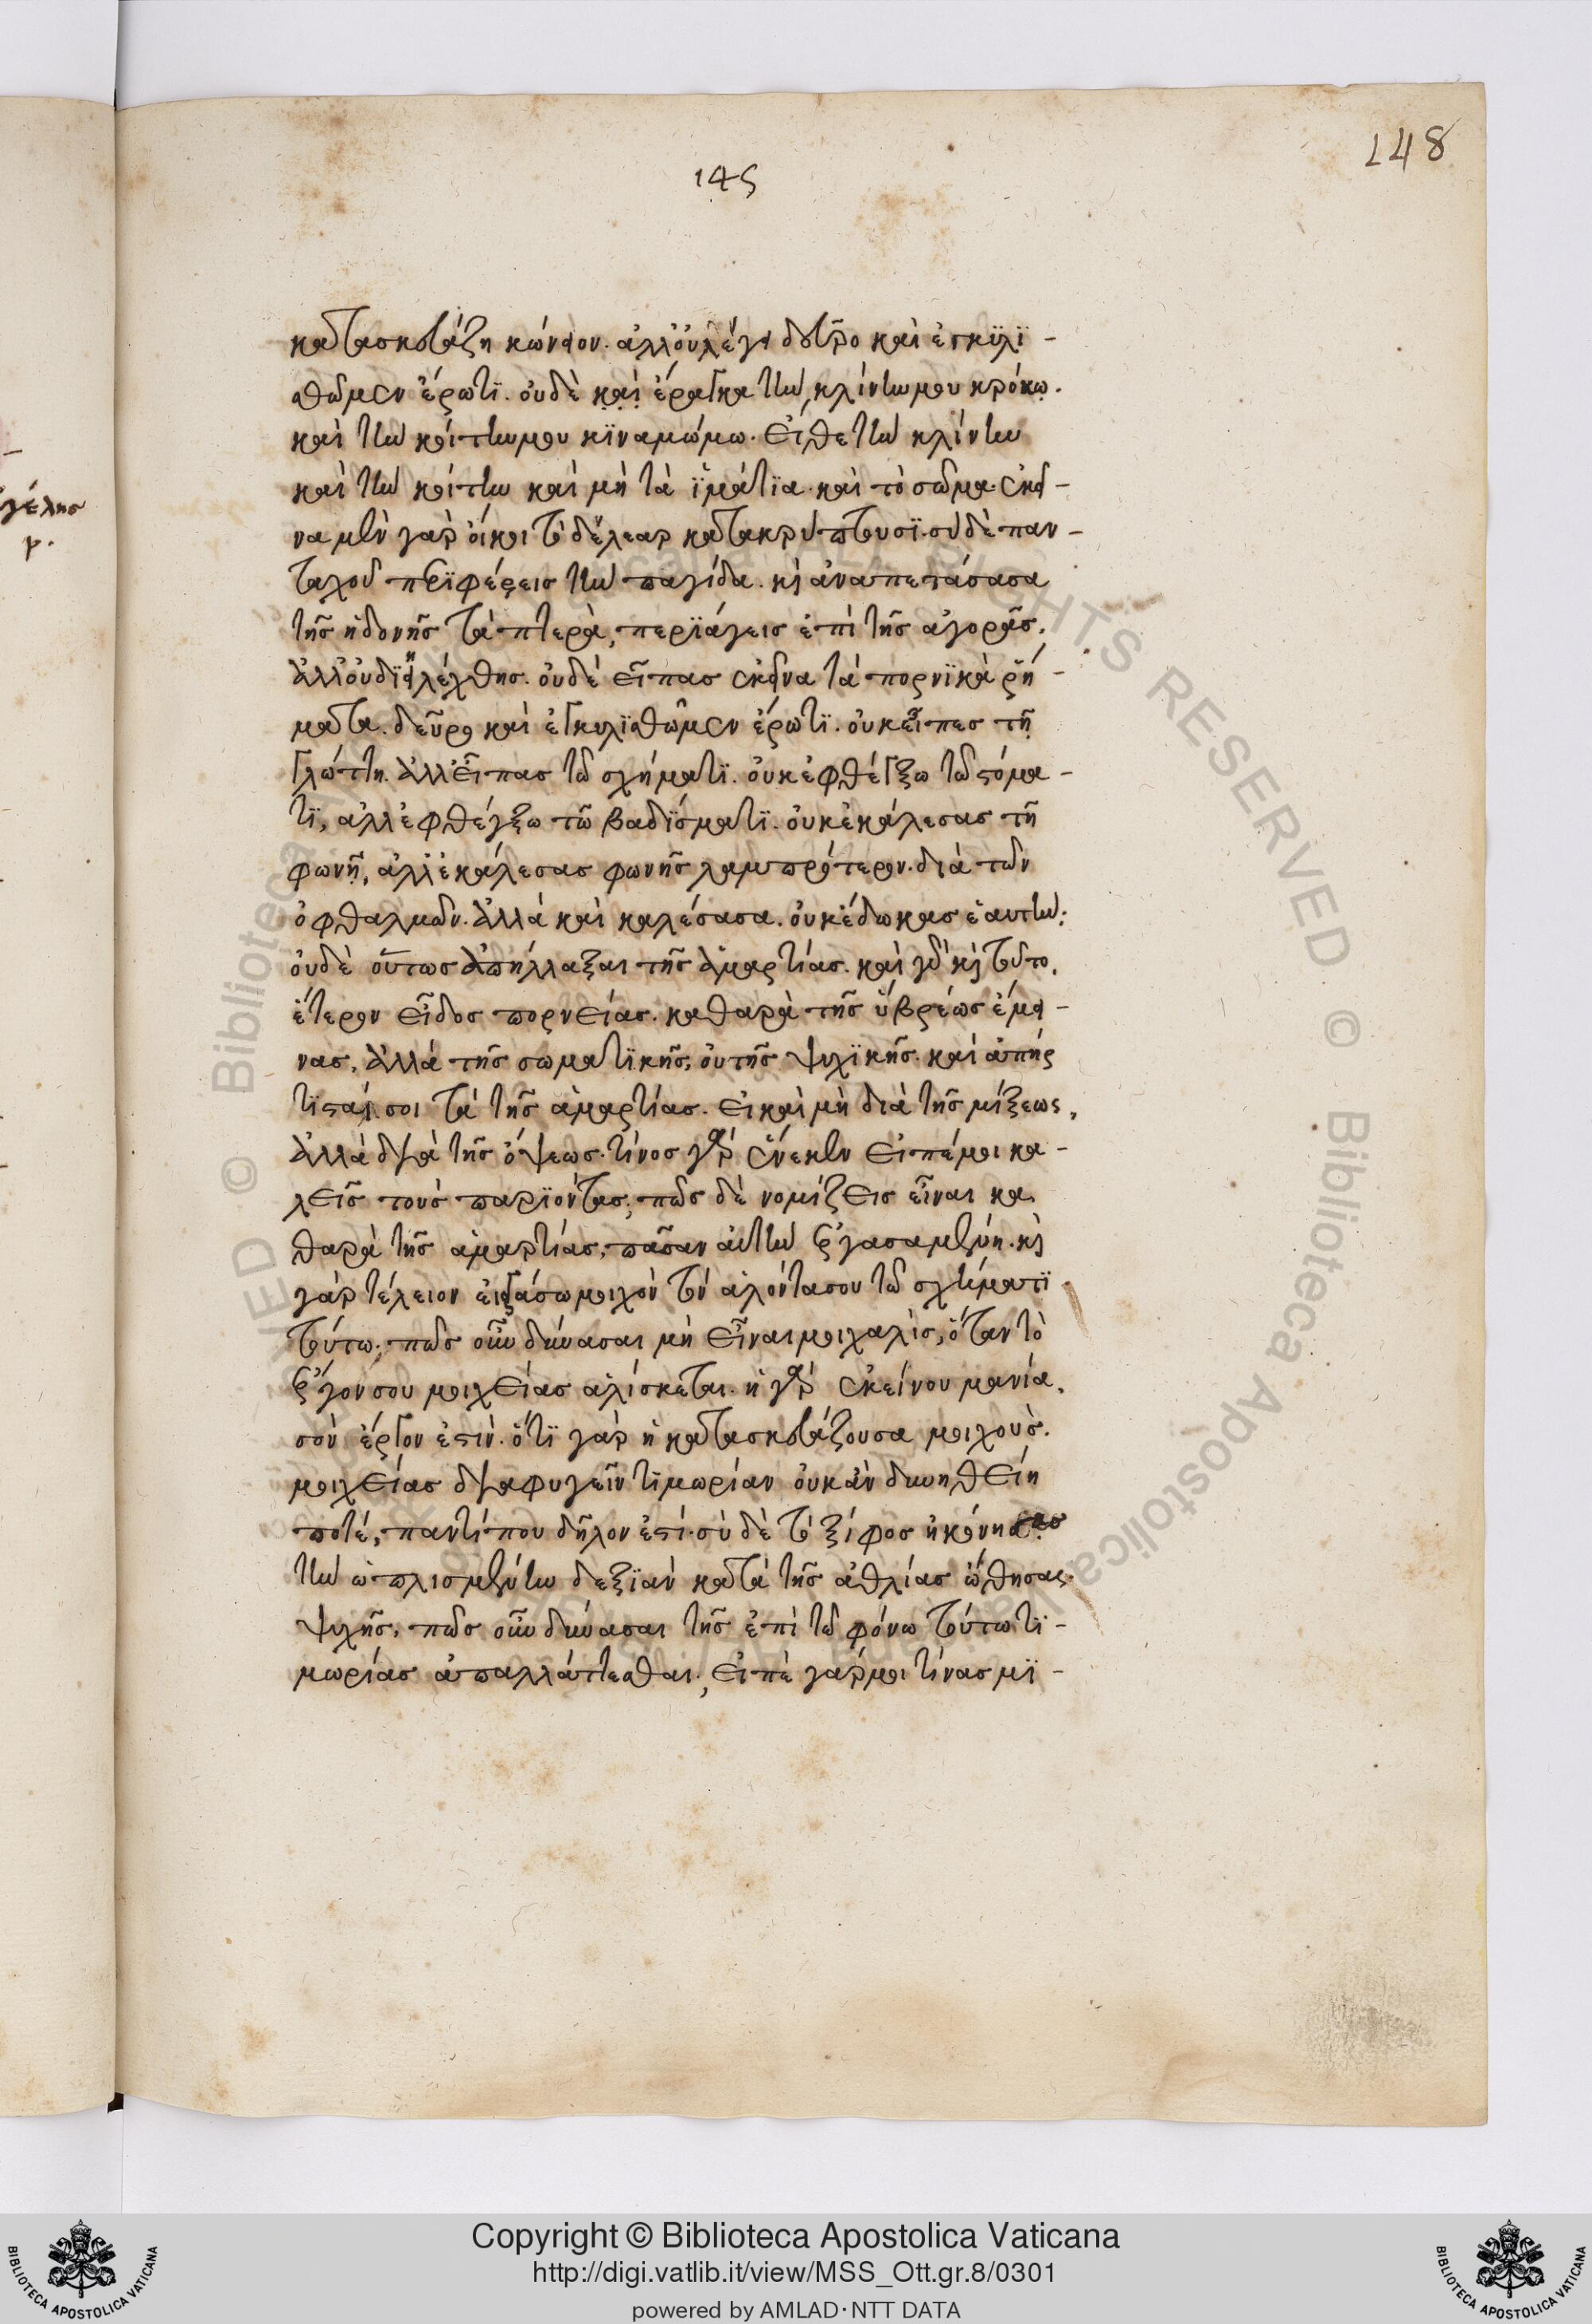 148
145
κατασκευάζη κώνειον. ἀλλ' οὐ λέγει δεῦρο καὶ ἐγκυλϊ -
σθῶμεν ἔρωτϊ. οὐδὲ καὶ ἔραγκα τὴν κλίνην μου κρόκω.
καὶ τὴν κοίτην μου κϊναμώμω. εἴθε τὴν κλίνην
καὶ τὴν κοίτην καὶ μὴ τὰ ϊμάτϊα. καὶ τὸ σῶμα. ἐκεῖ -
ναι μὲν γὰρ οἴκοι τὸ δέλεαρ κατακρύπτουσϊ. σὺ δὲ παν -
ταχοῦ περϊφέρεις τὴν παγίδα. καὶ ἀναπετάσασα
τῆς ἡδονῆς τὰ πτερὰ, περϊάγεις ἐπὶ τῆς ἀγορᾶς.
ἀλλ' οὐ διηλέχθης. οὐδὲ εἶπας ἐκεῖνα τὰ πορνϊκὰ ῥή -
ματα. δεῦρο καὶ ἐγκυλϊσθῶμεν ἔρωτϊ. οὐκ εἶπες τῆ
γλώττη. ἀλλ' εἶπας τῶ σχήματϊ. οὐκ ἐφθέγξω τῶ στόμα -
τϊ, ἀλλ' ἐφθέγξω τῶ βαδϊσματϊ. οὐκ ἐκάλεσας τῆ
φωνῆ, ἀλλ' ἐκάλεσας φωνῆς λαμπρότερον. διὰ τῶν
ὀφθαλμῶν. ἀλλὰ καὶ καλέσασα. οὐκ ἔδωκας ἑαυτήν;
οὐδὲ οὕτως ἀπήλλαξαι τῆς ἁμαρτίας. καὶ γὰρ καὶ τοῦτο,
ἕτερον εἶδος πορνείας. καθαρὰ τῆς ὕβρεως ἔμει -
νας, ἀλλὰ τῆς σωματϊκῆς, οὐ τῆς ψυχϊκῆς. καὶ ἀπήρ
τϊσταί σοι τὰ τῆς ἁμαρτίας. εἰ καὶ μὴ διὰ τῆς μίξεως,
ἀλλὰ διὰ τῆς ὄψεως. τίνος γὰρ ἕνεκεν εἰπέ μοι κα -
λεῖς τοὺς παρϊόντας; πῶς δὲ νομίζεις εἶναι κα
θαρὰ τῆς ἁμαρτίας, πᾶσαν αὐτὴν ἐργασαμένη. καὶ
γὰρ τέλειον εἰργάσω μοιχὸν τὸν ἁλόντα σου τῶ σχήματϊ
τούτω. πῶς οὖν δύνασαι μὴ εἶναι μοιχαλὶς, ὅταν τὸ
ἔργον σου μοιχείας ἁλίσκεται. ἡ γὰρ ἐκείνου μανία,
σὸν ἔργον ἐστίν. ὅτϊ γὰρ ἡ κατασκευάζουσα μοιχοὺς.
μοιχείας διαφυγεῖν τϊμωρίαν οὐκ ἂν δυνηθείη
ποτέ, παντί που δῆλον ἐστί. σὺ δὲ τὸ ξίφος ἠκόνησας
τὴν ὡπλισμένην δεξϊὰν κατὰ τῆς ἀθλίας ὤθησας
ψυχῆς. πῶς οὖν δύνασαι τῆς ἐπὶ τῶ φόνω τούτω τϊ -
μωρίας ἀπαλλάττεσθαι; εἰπὲ γάρ μοι τίνας μϊ -
Copyright © Biblioteca Apostolica Vaticana
http://digi.vatlib.it/view/MSS_Ott.gr.8/0301
powered by AMLAD·NTT DATA